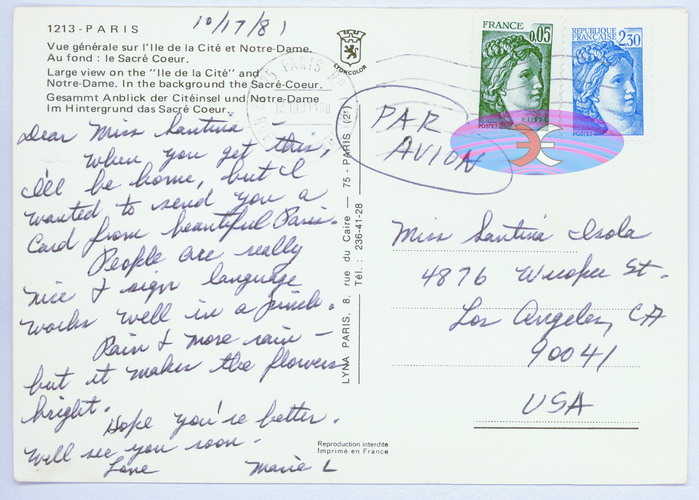 1213 - PARIS
10/17/81
Vue générale sur l'Ile de la Cité et Notre-Dame.
Au fond : le Sacré Coeur.
Large view on the "Ile de la Cité" and
Notre-Dame. In the background the Sacré-Coeur.
Gesammt Anblick der Citéinsel und Notre-Dame
Im Hintergrund das Sacré Coeur.
LYONCOLOR
Dear Miss Santina
When you get this,
I'll be home, but I
wanted to send you a
Card from beautiful Paris.
People are really
nice & sign language
works well in a pinch.
Rain & more rain -
but it makes the flowers
bright.
Hope you're better.
Will see you soon.
Love Marie L
LYNA PARIS, 8, rue du Caire — 75 - PARIS (2e)
Tél. : 236-41-28
Reproduction interdite
Imprimé en France
PARIS
FRANCE 0,05
POSTES
REPUBLIQUE
FRANÇAISE 2,30
POSTES
PAR
AVION
Miss Santina Isola
4876 St.
Los Angeles, CA
90041
USA